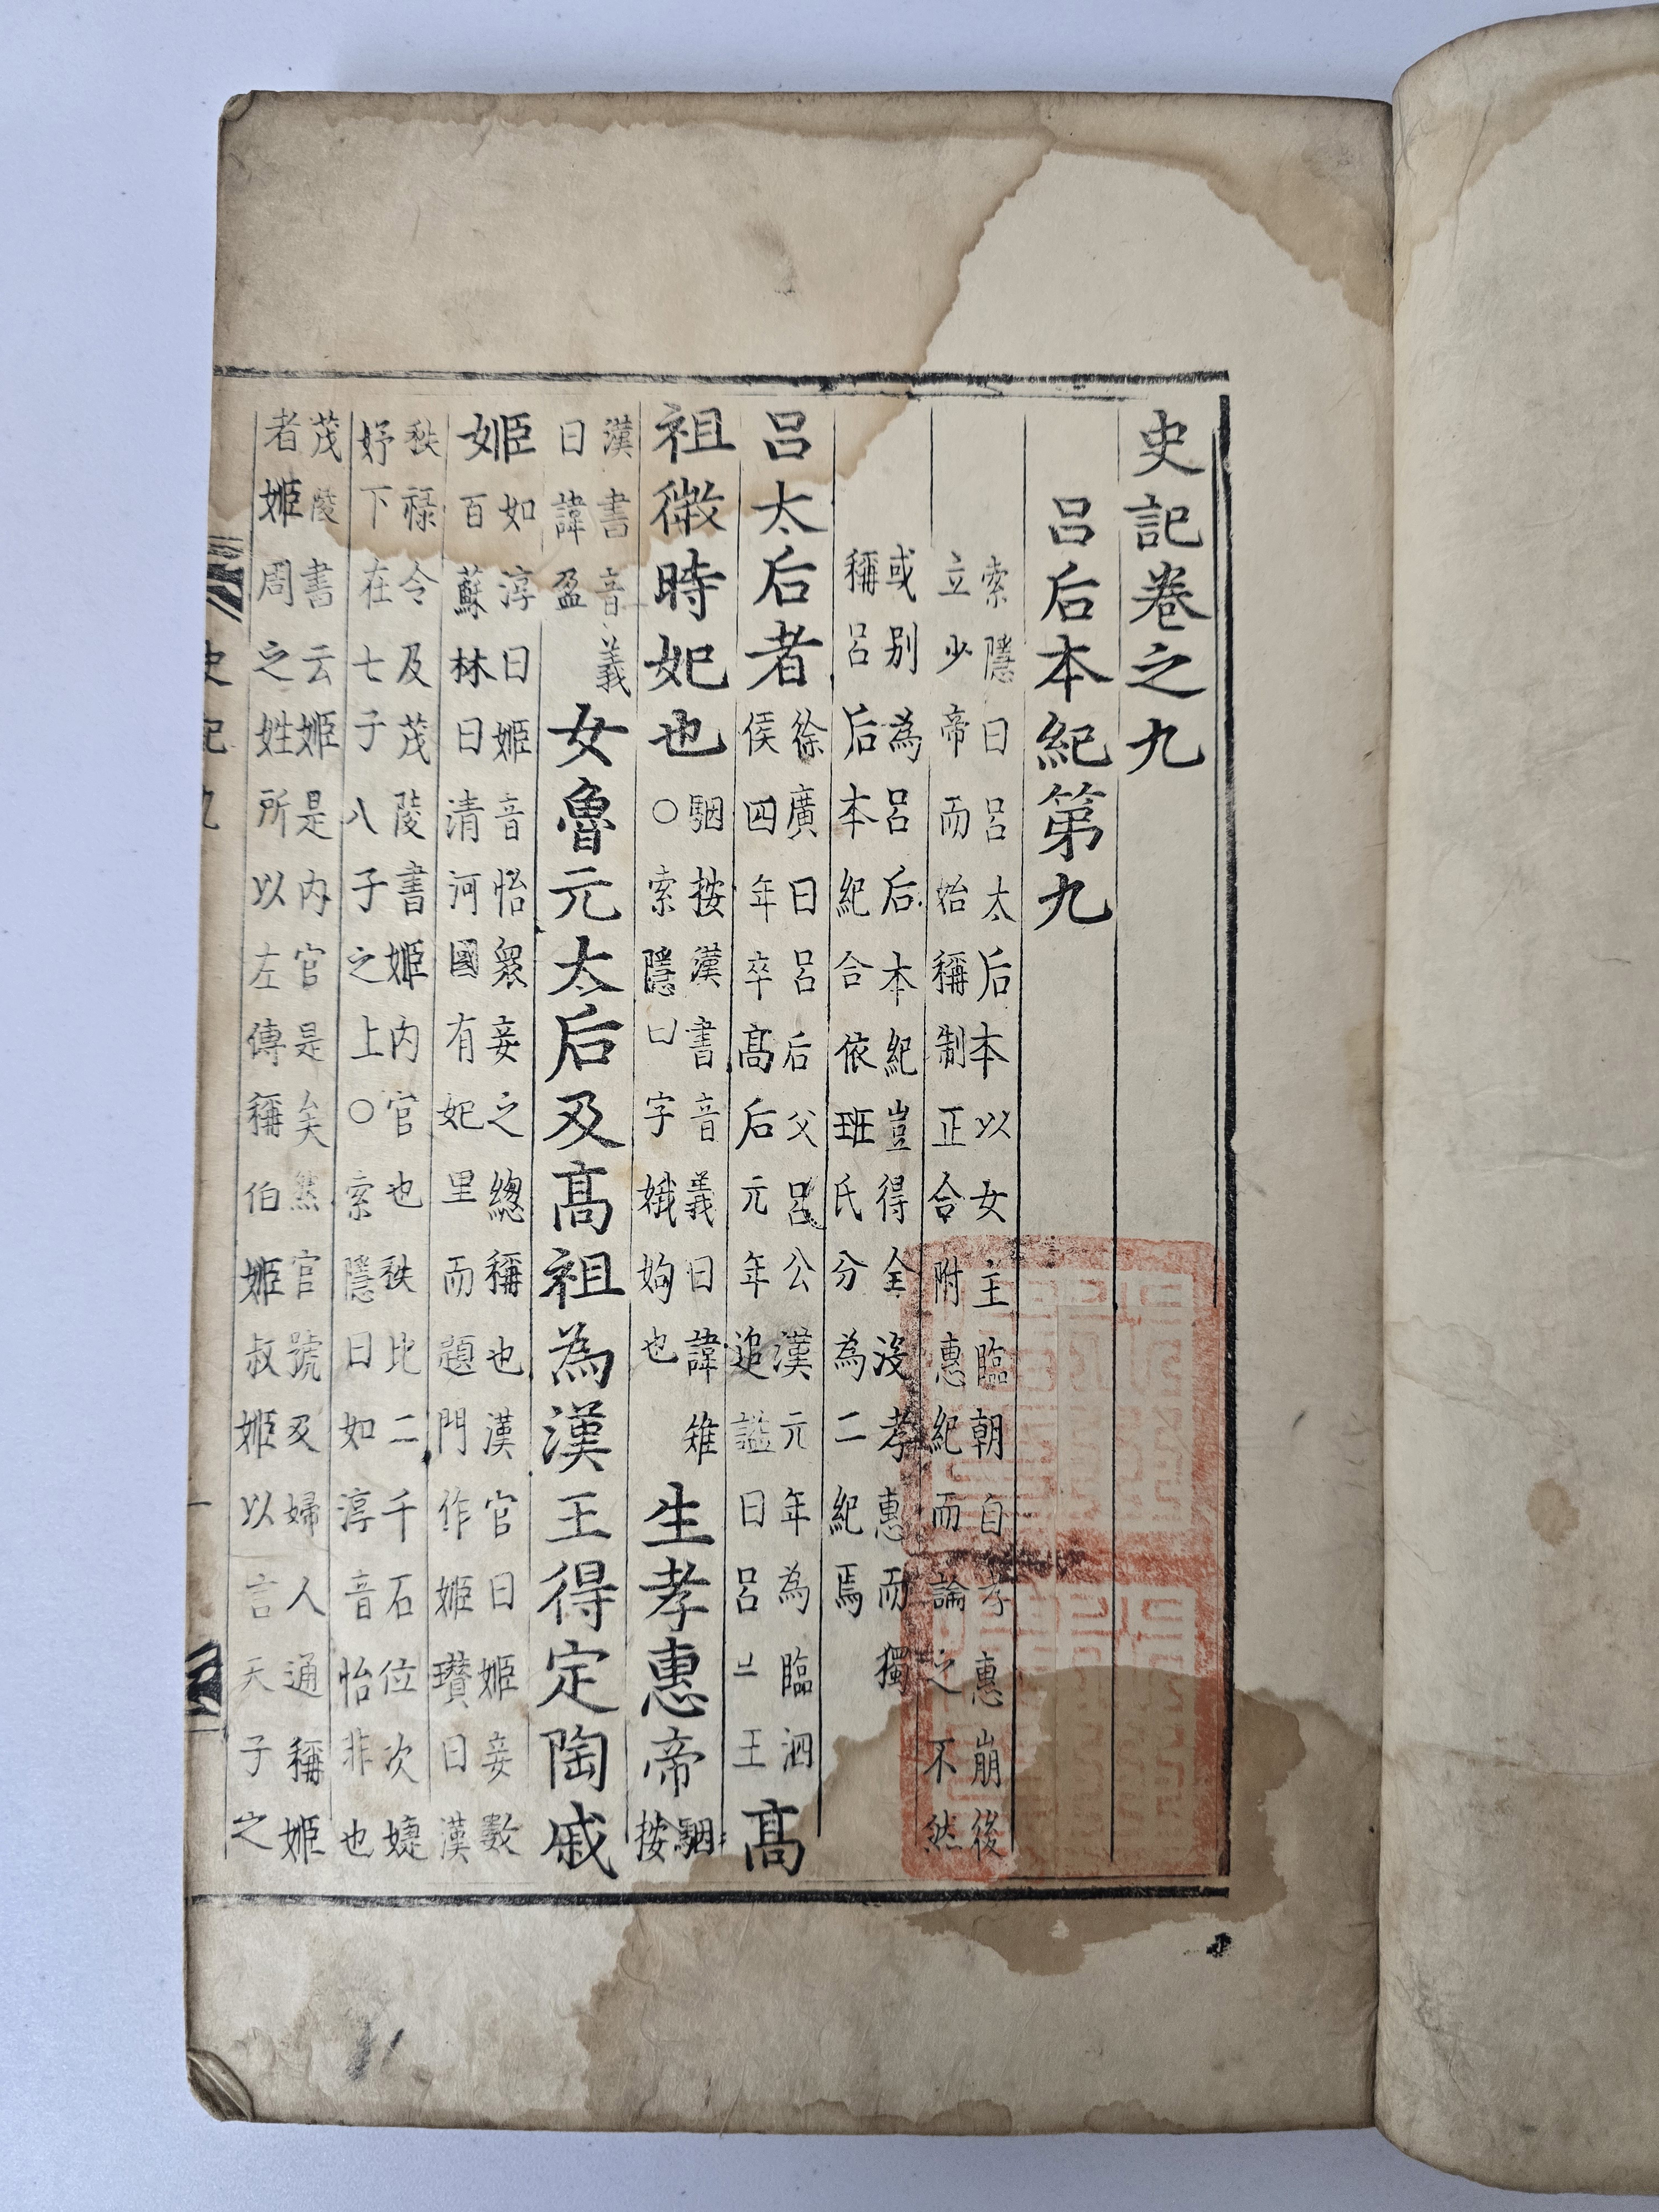 史記卷之九
呂后本紀第九
索隱曰呂太后本以女主臨朝自孝惠崩後
立少帝而始稱制正合附惠紀而論之不然
或別為呂后本紀豈得全沒孝惠而獨
稱呂后本紀合依班氏分為二紀焉
呂太后者
徐廣曰呂后父呂公漢元年為臨泗
侯四年卒髙后元年追謚曰呂王
髙
祖微時妃也
駰按漢書音義曰諱雉
○索隱曰字娥姁也
生孝惠帝
駰
按
漢書音義
曰諱盈
女魯元太后及髙祖為漢王得定陶戚
姬
如淳曰姬音怡衆妾之總稱也漢官曰姬妾數
百蘇林曰清河國有妃里而題門作姬瓚曰漢
秩祿令及茂陵書姬內官也秩比二千石位次婕
妤下在七子八子之上○索隱曰如淳音怡非也
茂陵書云姬是內官是矣然官號及婦人通稱姬
者姬周之姓所以左傳稱伯姬叔姬以言天子之
史記九
一